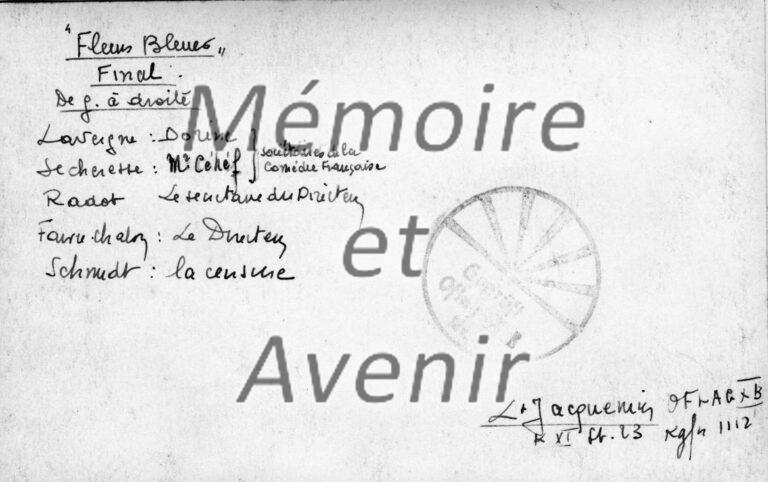 "Fleurs Bleues"
Final.
De g. à droite
Lavergne : Dorine
Secheresse : Mr Céhéf
Sociétaires de la
Comédie Française
Radot Le secretaire du Directeur
Faure-Chalon : Le Directeur
Schmidt : la censure
Mémoire
et
Avenir
Lt Jacquemin OFLAG XB
K XI St. 23 Kgfn 1112